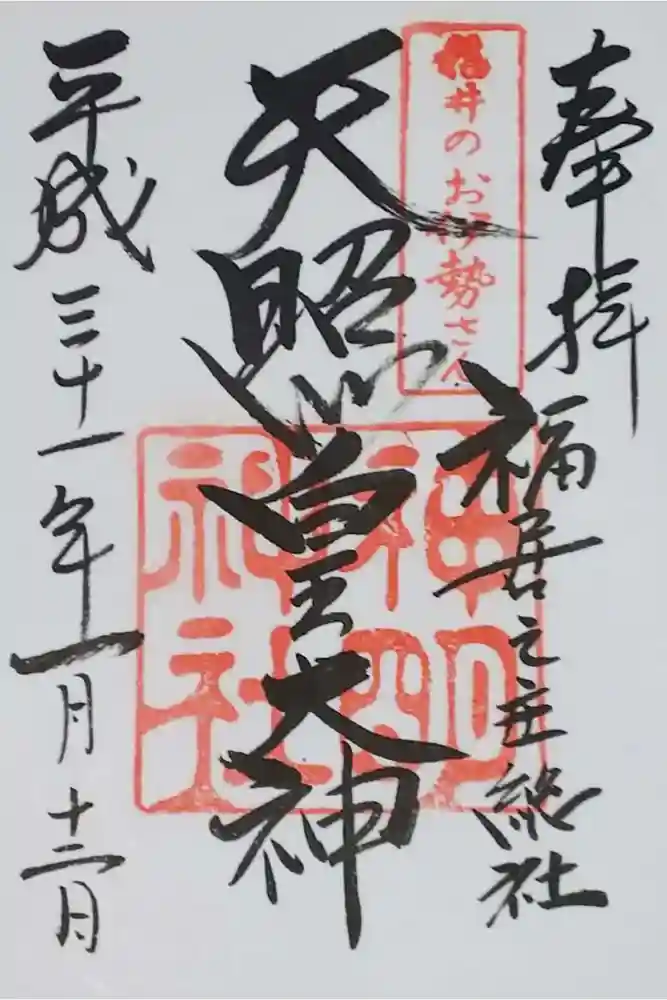 奉拝
福井のお伊勢さん
福居之庄総社
天照皇大神
神明神社
平成三十一年一月十二日